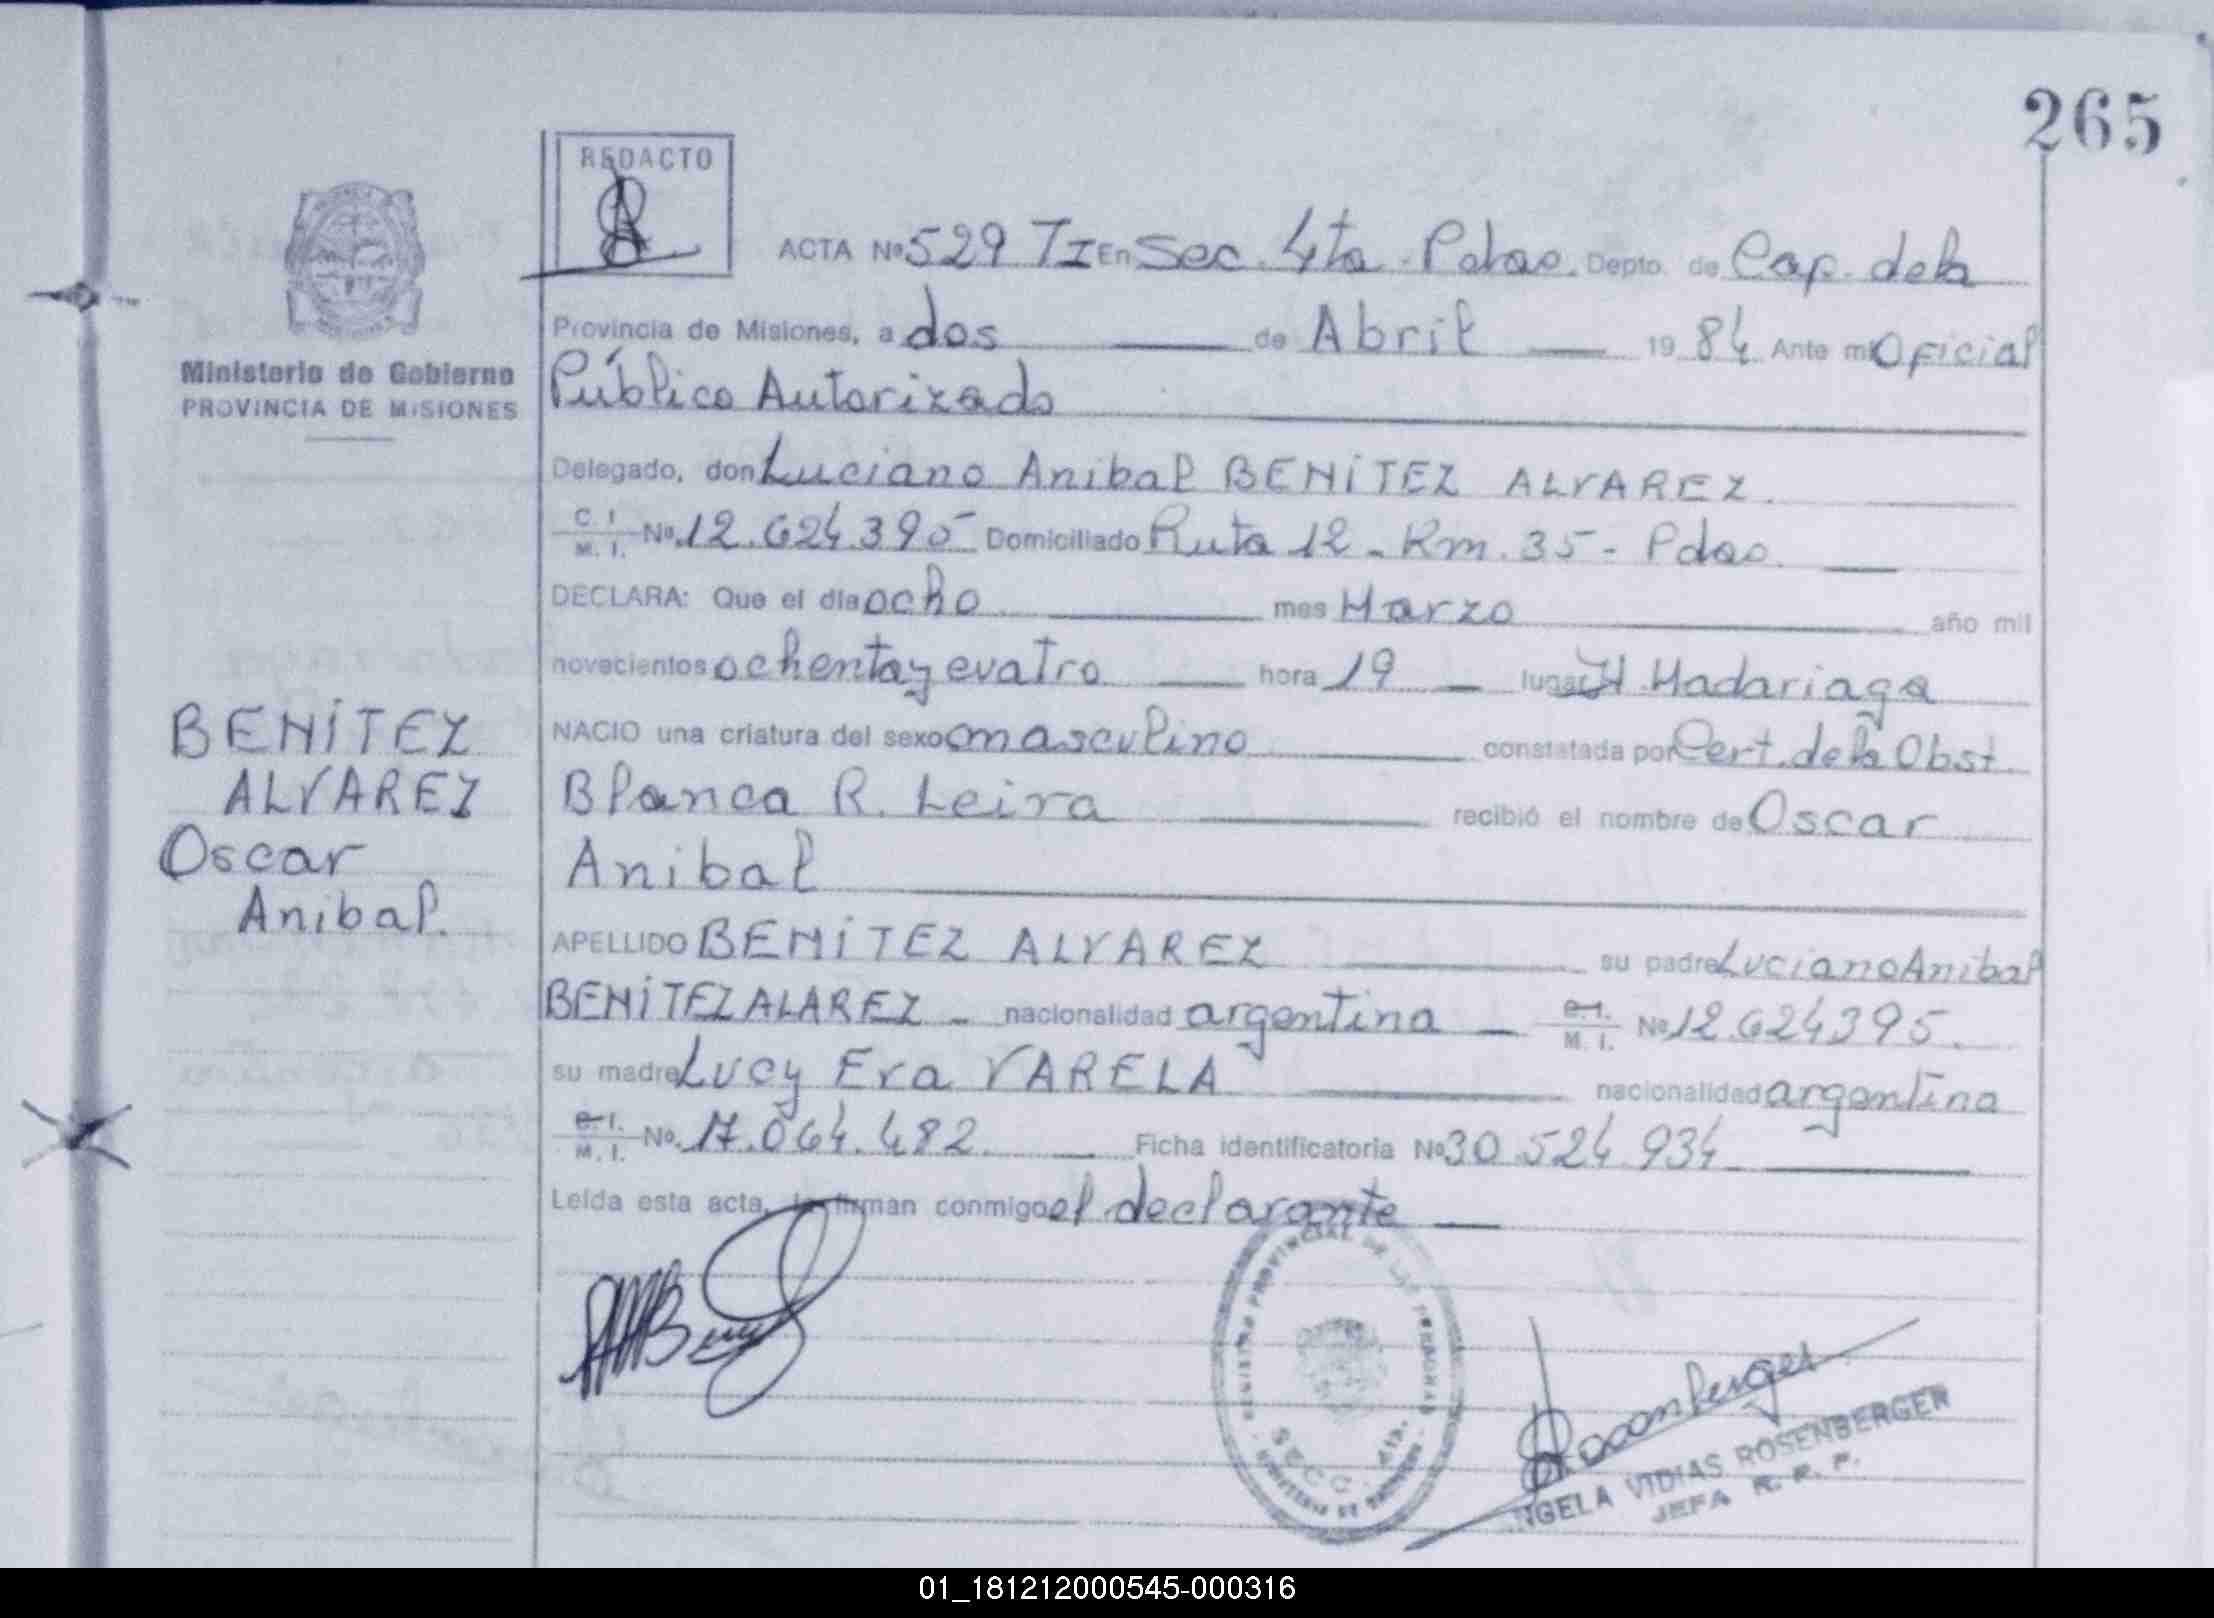 265
REDACTO
ACTA Nº 529 TI En Sec. 4ta. Pdas. Depto. de Cap. de la
Provincia de Misiones, a dos de Abril 1984 Ante mi Oficial
Público Autorizado
Ministerio de Gobierno
PROVINCIA DE MISIONES
Delegado, don Luciano Anibal BENÍTEZ ALVAREZ.
C. I.
M. I. Nº 12.624.395 Domiciliado Ruta 12 - Km. 35 - Pdas.
DECLARA: Que el día ocho mes Marzo año mil
novecientos ochenta y cuatro hora 19 lugar H. Madariaga
NACIO una criatura del sexo masculino constatada por Cert. de la Obst.
Blanca R. Leira recibió el nombre de Oscar
Anibal
BENÍTEZ
ALVAREZ
Oscar
Anibal.
APELLIDO BENÍTEZ ALVAREZ su padre Luciano Anibal
BENÍTEZ ALAREZ - nacionalidad argentina C.I.
M. I. Nº 12.624395.
su madre Lucy Eva VARELA nacionalidad argentina
C.I.
M. I. Nº 17.064.482 Ficha identificatoria Nº 30.524.934
Leída esta acta, la firman conmigo el declarante
REGISTRO PROVINCIAL DE LAS PERSONAS
SECC. 4ta.
ANGELA VIDIAS ROSENBERGER
JEFA R. R. P.
01_181212000545-000316